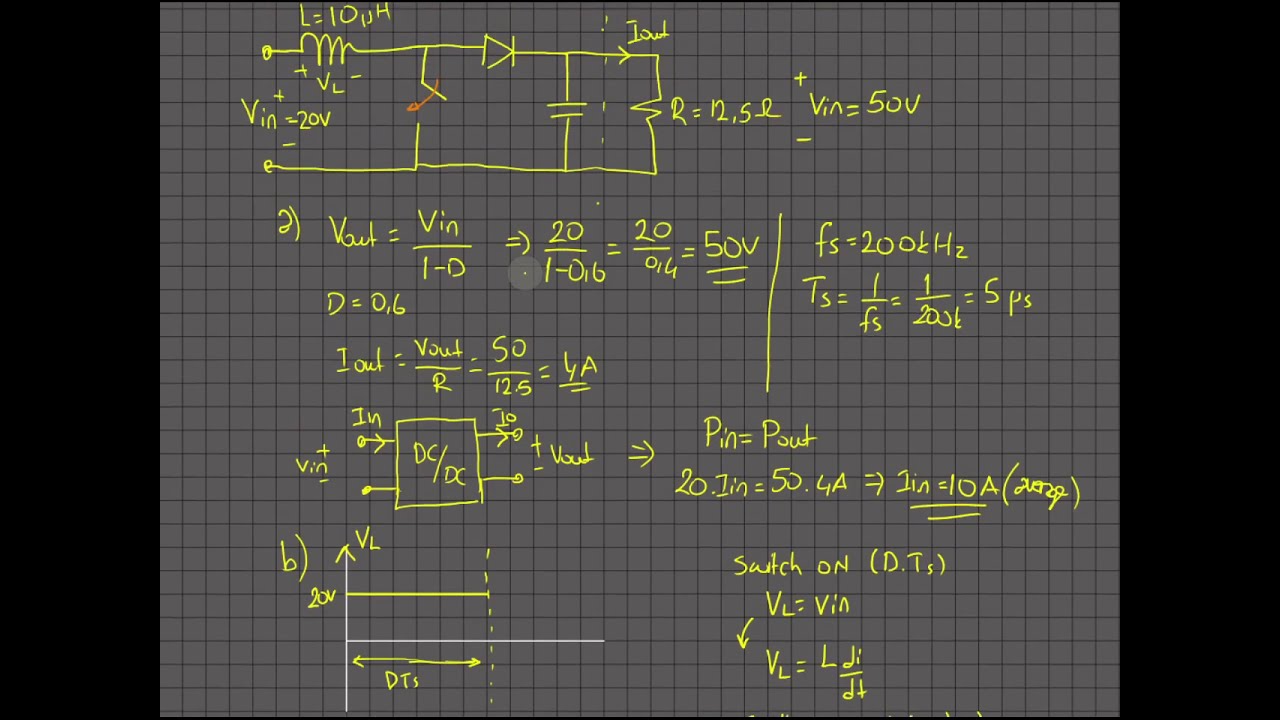 L=10μH
Iout
+ VL -
+
Vin = 20V
-
R = 12,5Ω
+
Vin = 50V
-
a) Vout = Vin / 1-D => 20 / 1-0,6 = 20 / 0,4 = 50V
D = 0,6
fs = 200kHz
Ts = 1 / fs = 1 / 200k = 5 μs
Iout = Vout / R = 50 / 12.5 = 4A
Iin
Io
+
Vin
-
DC/DC
+
- Vout
=>
Pin = Pout
20.Iin = 50.4A => Iin = 10A (average)
b)
VL
20V
DTs
Switch ON (D.Ts)
VL = Vin
VL = L di / dt